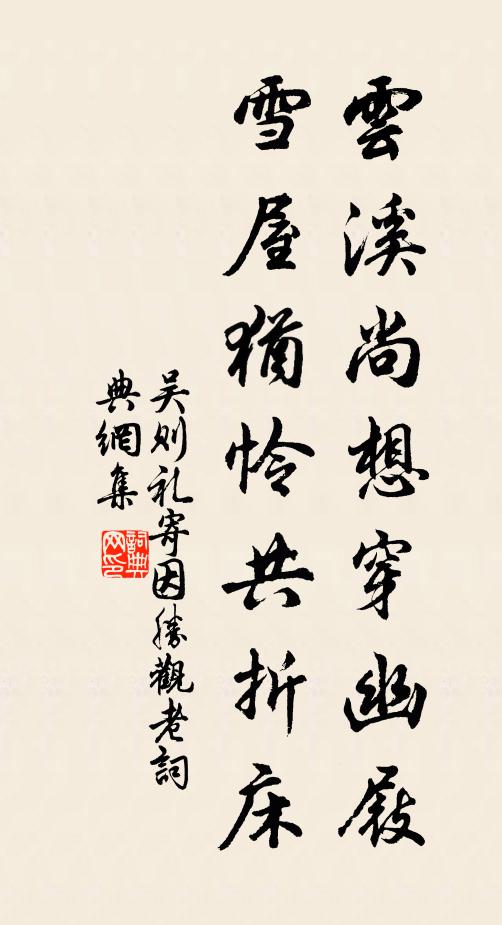 雲溪尚想穿幽屐
雪屋猶怜共折床
吴则礼寄因胜觀老詞
典網集
詞典网印